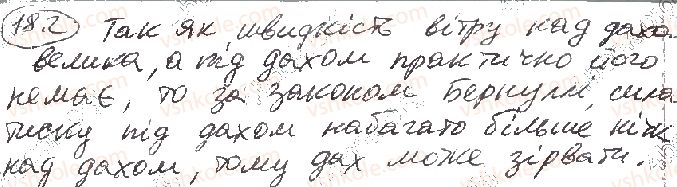 18.2 Так як швидкість вітру над дахом
велика, а під дахом практично його
немає, то за законом Бернуллі, сила
тиску під дахом набагато більше ніж
над дахом, тому дах може зірвати.